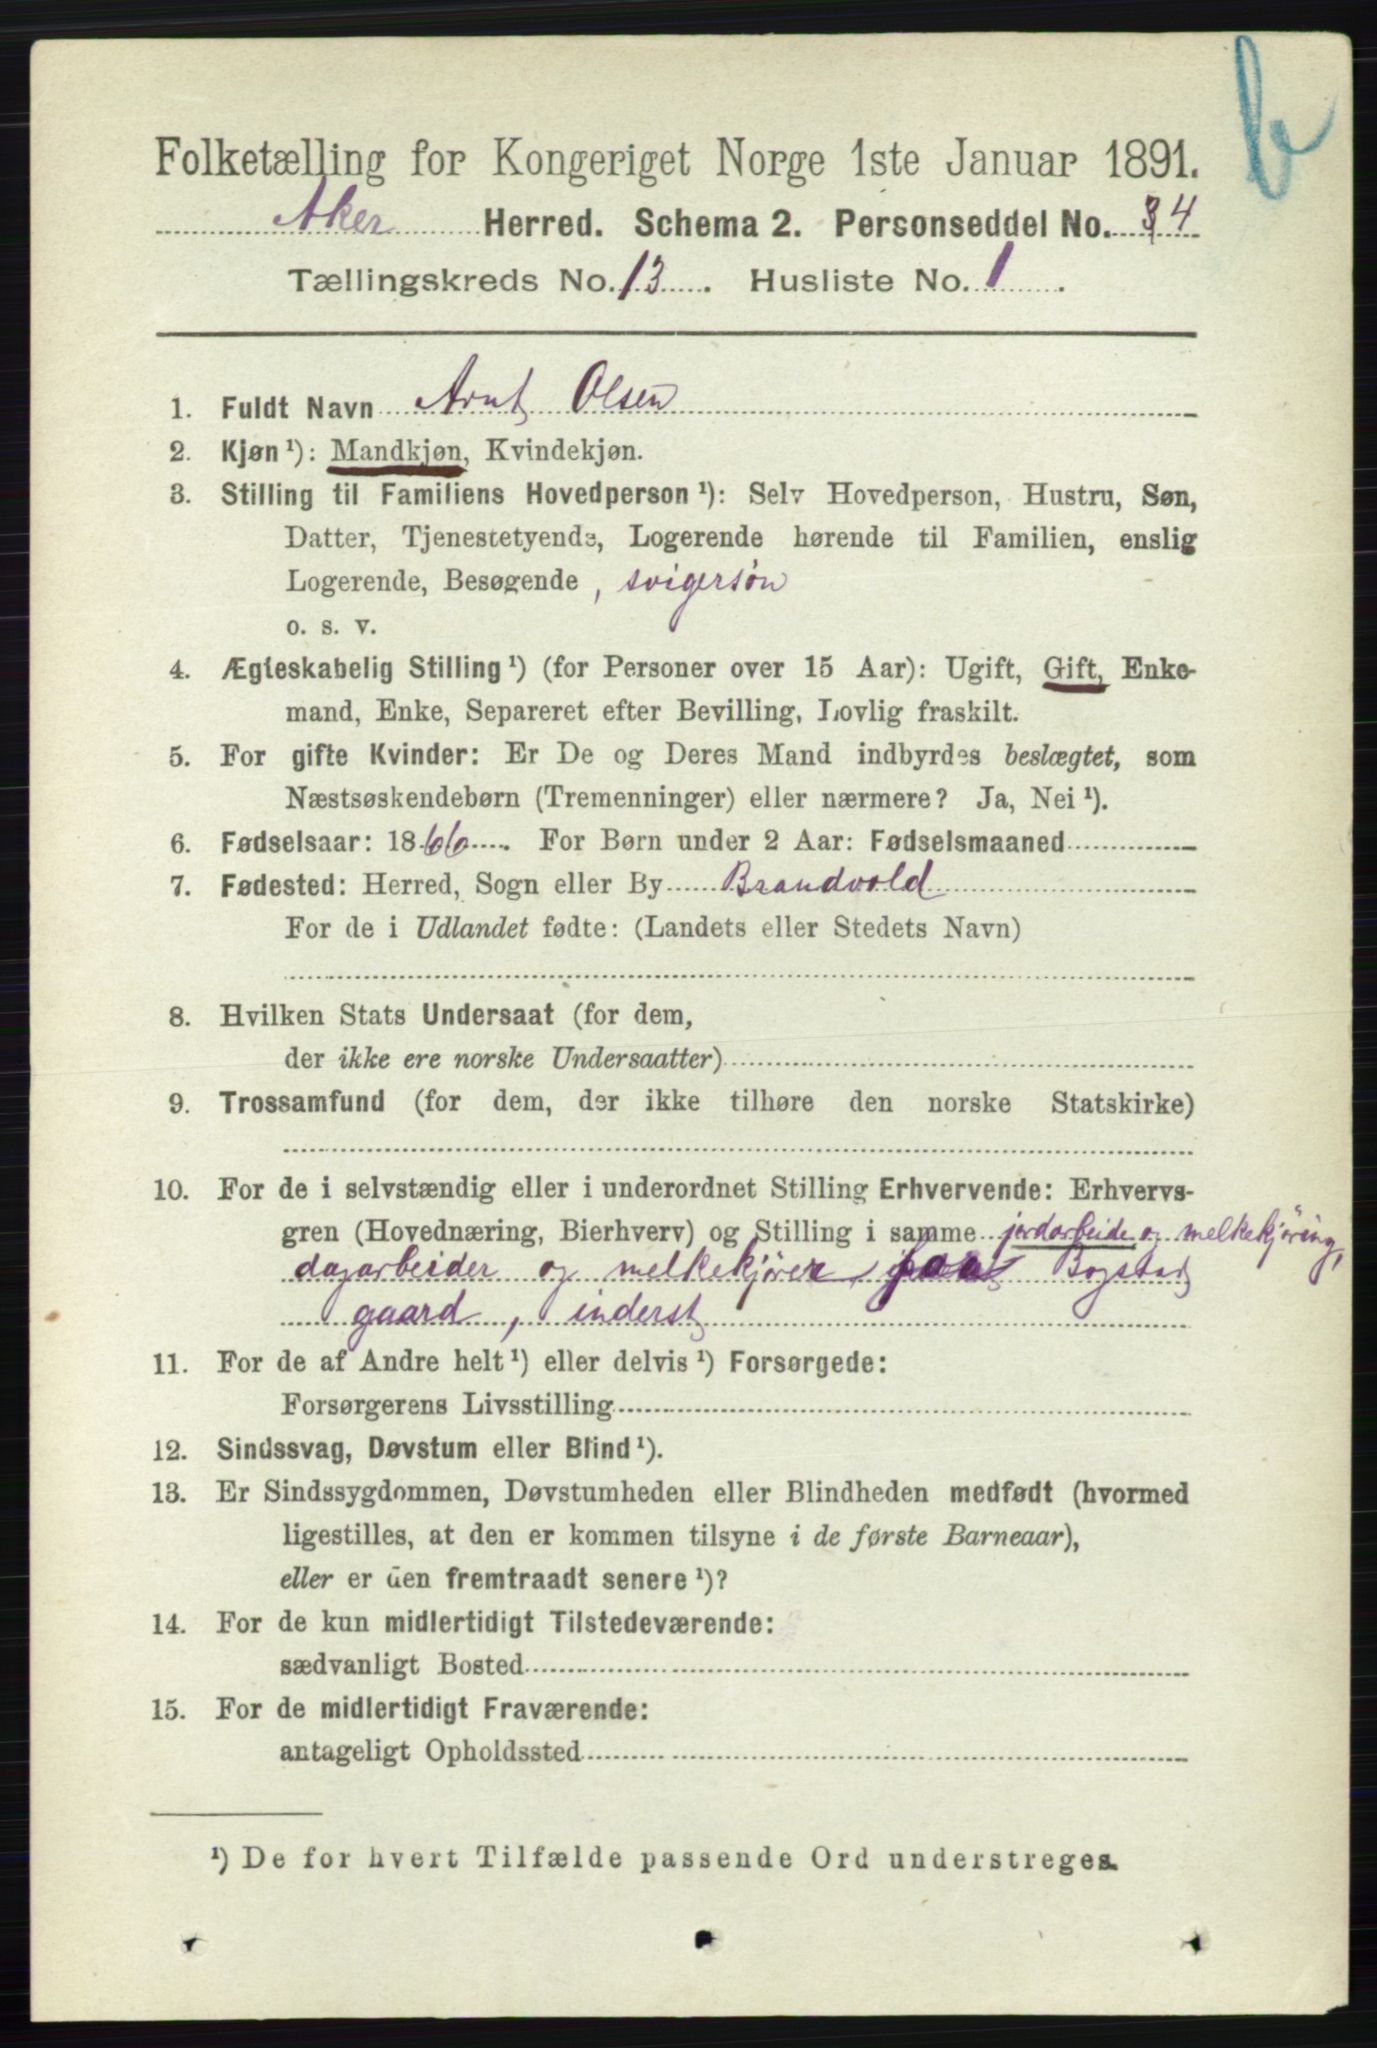 b
Folketælling for Kongeriget Norge 1ste Januar 1891.
Aker Herred. Schema 2. Personseddel No. 34
Tællingskreds No. 13. Husliste No. 1.
1. Fuldt Navn Arnt Olsen
2. Kjøn ¹): Mandkjøn, Kvindekjøn.
3. Stilling til Familiens Hovedperson ¹): Selv Hovedperson, Hustru, Søn,
Datter, Tjenestetyende, Logerende hørende til Familien, enslig
Logerende, Besøgende, svigersön
o. s. v.
4. Ægteskabelig Stilling ¹) (for Personer over 15 Aar): Ugift, Gift, Enke-
mand, Enke, Separeret efter Bevilling, Lovlig fraskilt.
5. For gifte Kvinder: Er De og Deres Mand indbyrdes beslægtet, som
Næstsøskendebørn (Tremenninger) eller nærmere? Ja, Nei ¹).
6. Fødselsaar: 1866. For Børn under 2 Aar: Fødselsmaaned
7. Fødested: Herred, Sogn eller By Brandvold
For de i Udlandet fødte: (Landets eller Stedets Navn)
8. Hvilken Stats Undersaat (for dem,
der ikke ere norske Undersaatter)
9. Trossamfund (for dem, der ikke tilhøre den norske Statskirke)
10. For de i selvstændig eller i underordnet Stilling Erhvervende: Erhvervs-
gren (Hovednæring, Bierhverv) og Stilling i samme jordarbeide og melkekjöring,
dagarbeider og melkekjörer, paa Bogstad
gaard, inderst
11. For de af Andre helt ¹) eller delvis ¹) Forsørgede:
Forsørgerens Livsstilling
12. Sindssvag, Døvstum eller Blind ¹).
13. Er Sindssygdommen, Døvstumheden eller Blindheden medfødt (hvormed
ligestilles, at den er kommen tilsyne i de første Barneaar),
eller er den fremtraadt senere ¹)?
14. For de kun midlertidigt Tilstedeværende:
sædvanligt Bosted
15. For de midlertidigt Fraværende:
antageligt Opholdssted
¹) De for hvert Tilfælde passende Ord understreges.